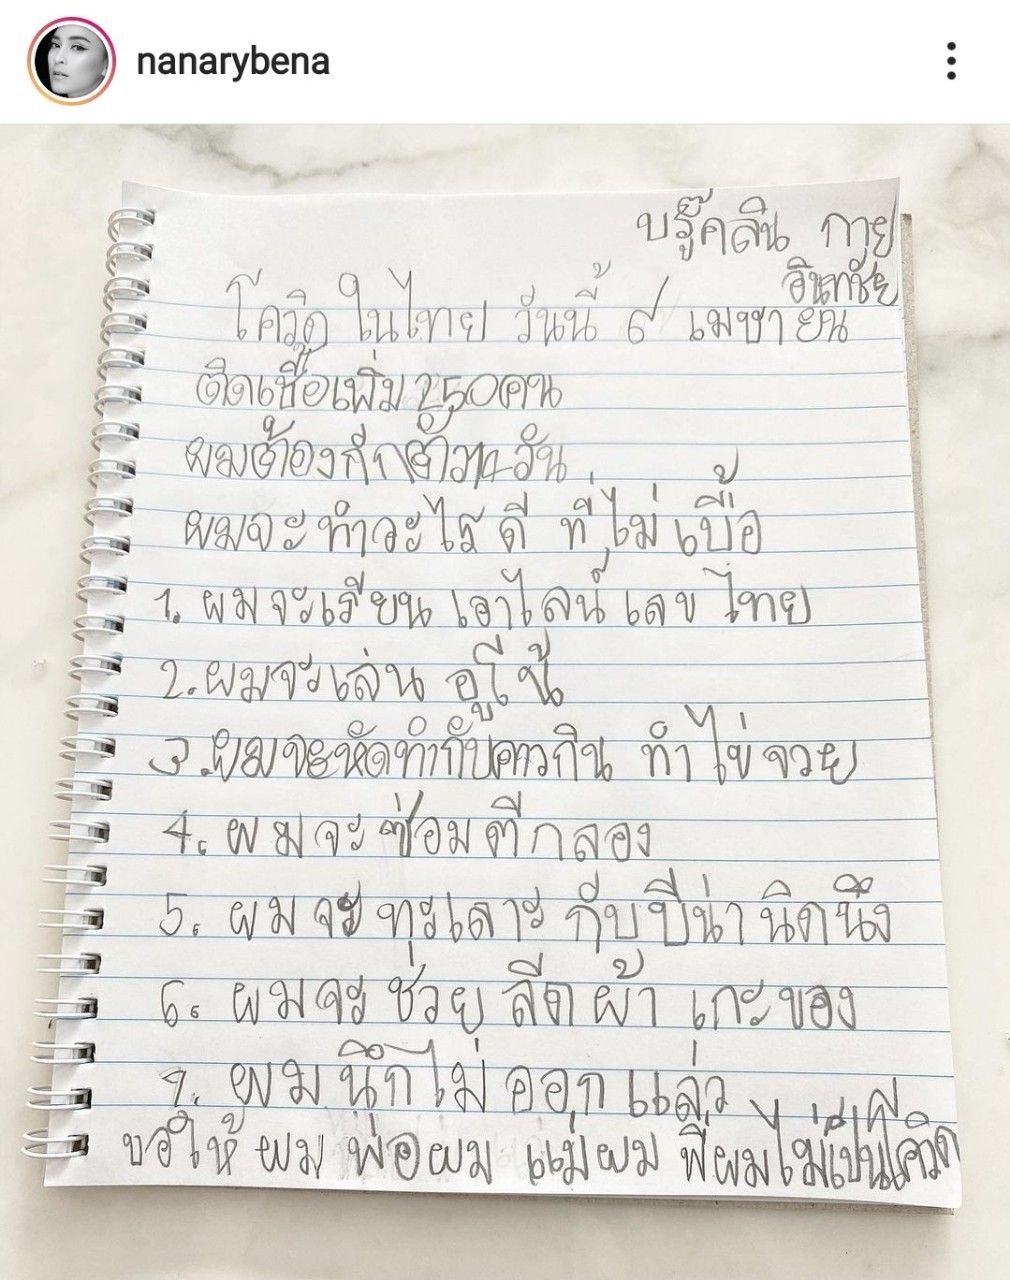 nanarybena
บรู๊คลิน กาย
อินทชัย
โควิด ในไทย วันนี้ ๙ เมษายน
ติดเชื้อเพิ่ม 250คน
ผมต้องกักตัว14วัน
ผมจะ ทำอะไร ดี ที่ ไม่ เบื่อ
1. ผมจะเรียน เอาไลน์ เลข ไทย
2. ผมจะเล่น อูโน้
3. ผมจะหัดทำกับคาวกิน ทำ ไข่ จวย
4. ผมจะ ซ่อม ตีกลอง
5. ผมจะ ทะเลาะ กับ บีน่า นิดนึง
6. ผมจะ ช่วย ลีดผ้า เกะของ
7. ผม นึกไม่ ออก แล่ว
ขอให้ ผม พ่อผม แม่ผม พี่ผมไม่เป็น